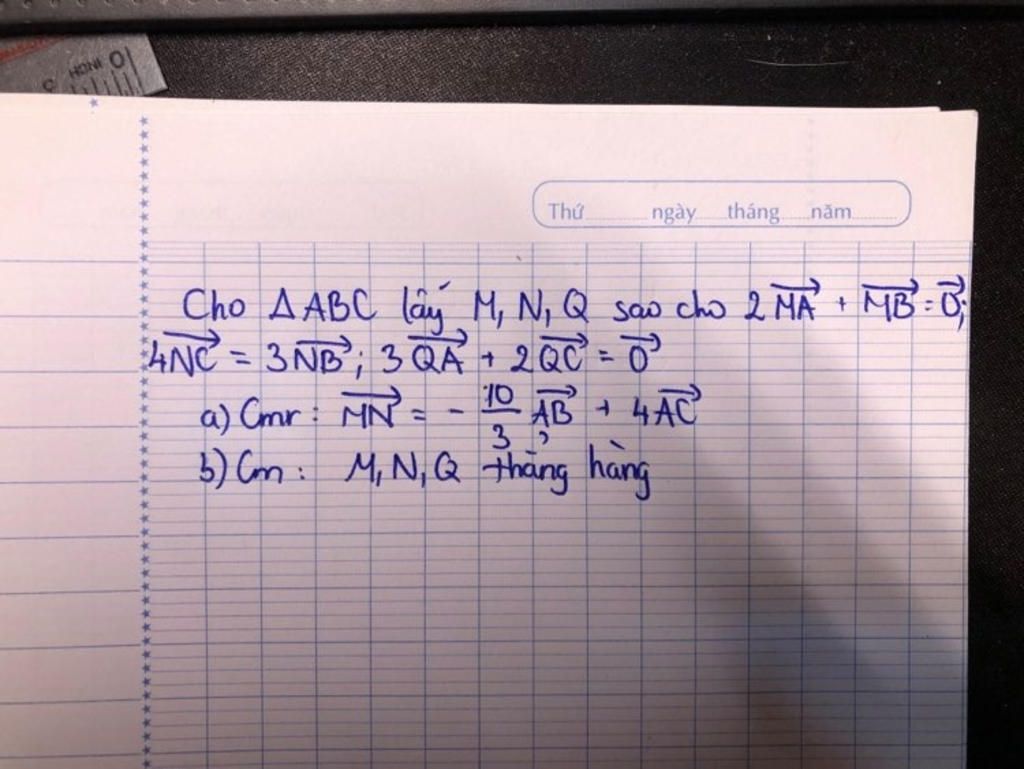 INCH 0
Thứ ngày tháng năm
Cho ΔABC lấy M, N, Q sao cho 2MA⃗ + MB⃗ = 0⃗;
4NC⃗ = 3NB⃗; 3QA⃗ + 2QC⃗ = 0⃗
a) Cmr: MN⃗ = - 10/3 AB⃗ + 4AC⃗
b) Cm: M, N, Q thẳng hàng